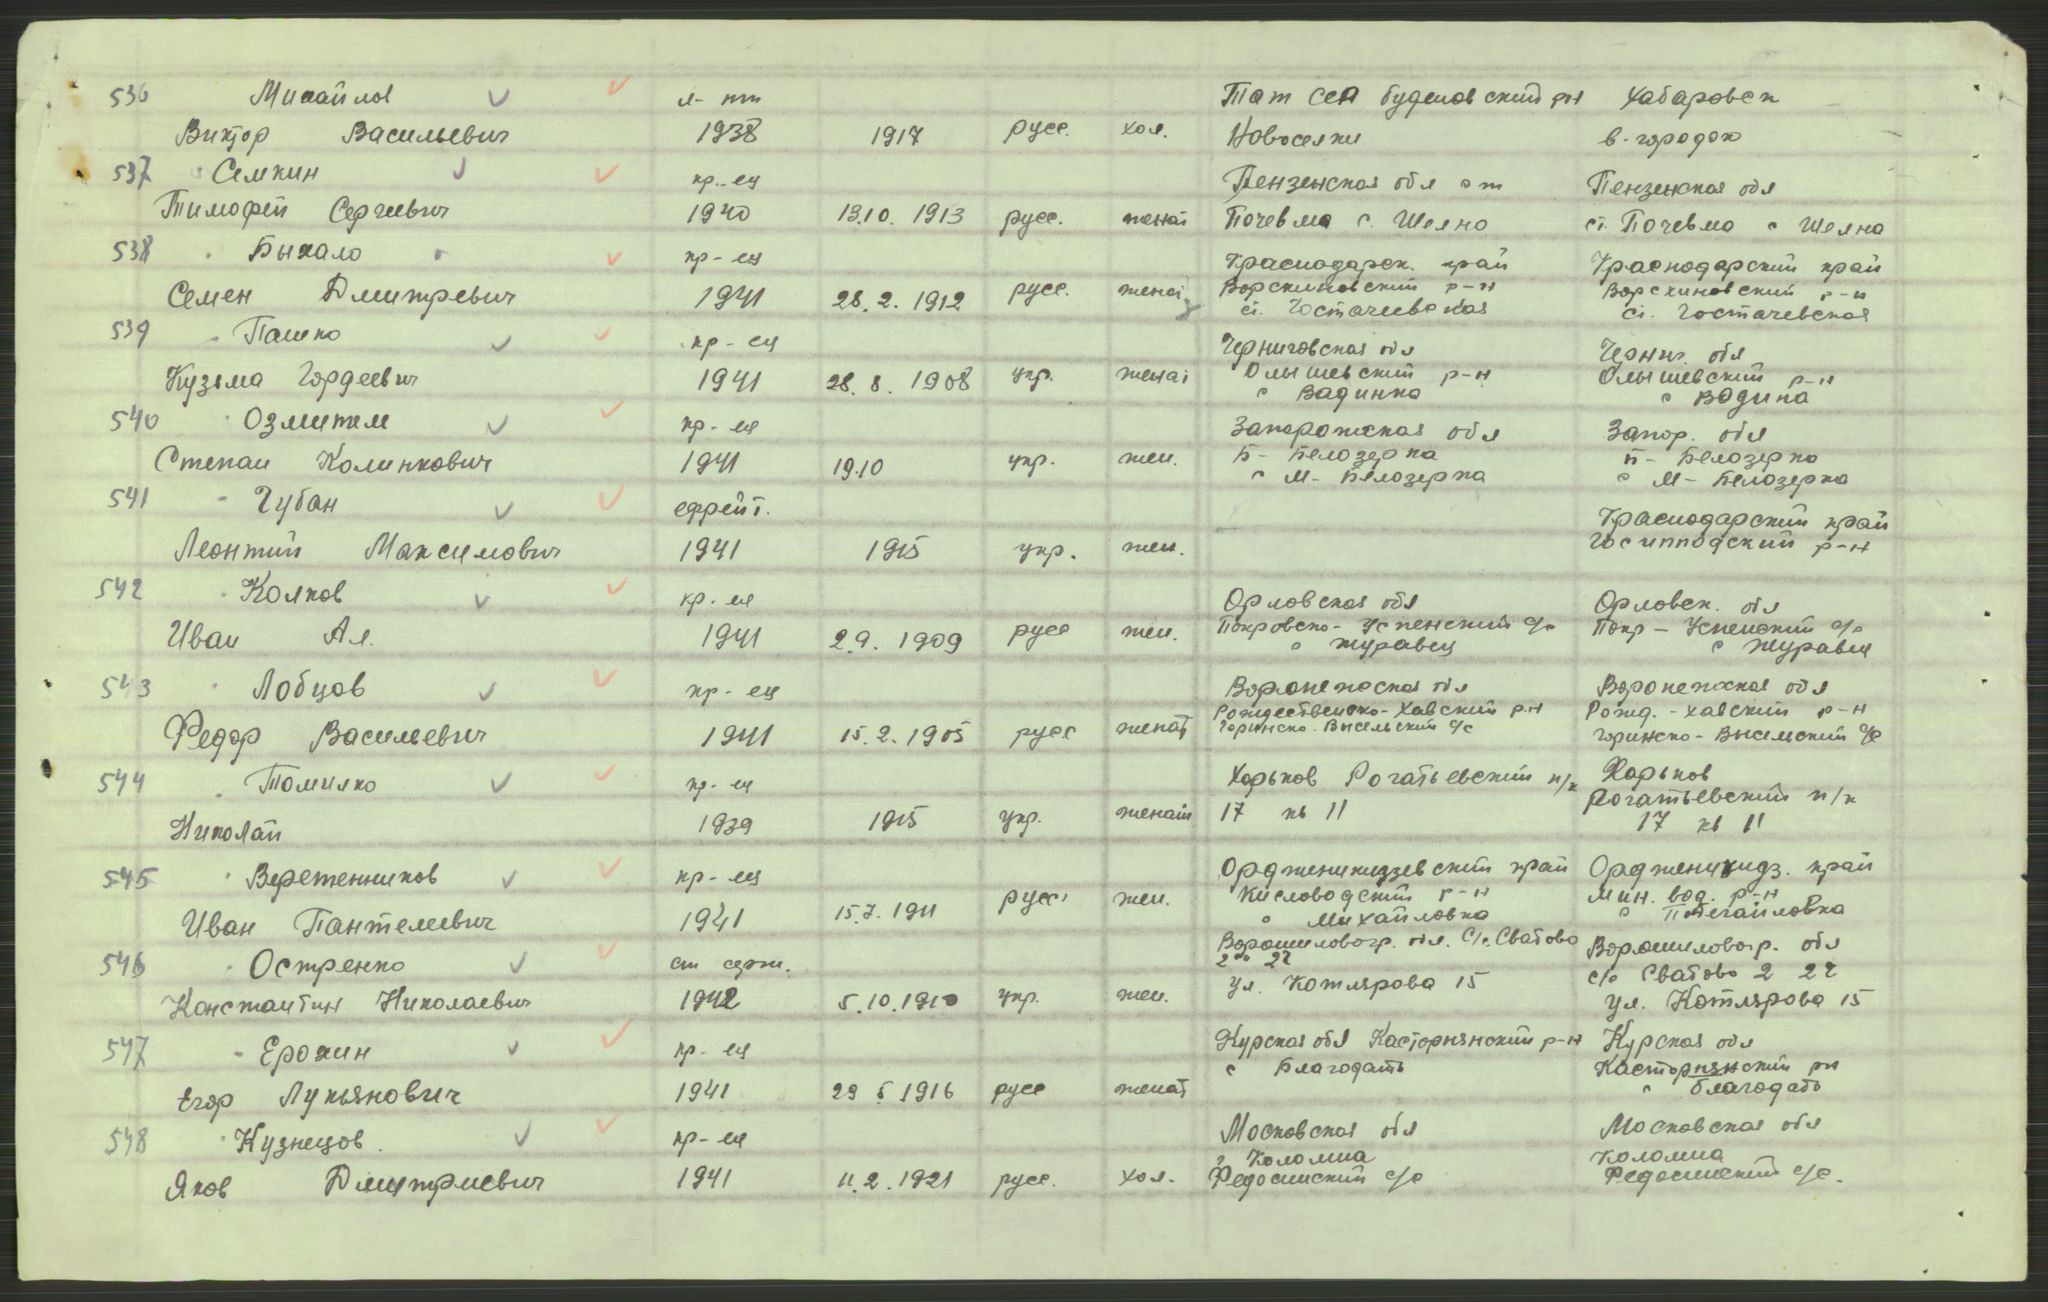 536 Михайлов л-нт Тат ССР буденовский рн Хабаровск
Виктор Васильевич 1938 1917 русс. хол. Новоселки в-городок
537 Семкин кр.-ец Пензенская обл ст Пензенская обл
Тимофей Сергеевич 1940 13.10.1913 русс. женат Почевма с. Шелно ст. Почевма с Шелна
538 Быкало кр-ец Краснодарск. край Краснодарский край
Семен Дмитревич 1941 28.2.1912 русс. женат Ворскиновский р-н Ворскиновский р-н
ст. Гостачеевская ст. Гостачевская
539 Пашко кр-ец Черниговская обл Черниг. обл
Кузьма Гордеевич 1941 28.8.1908 укр. женат Олышевский р-н Олышевский р-н
с Вадинка с Водина
540 Озмител кр-ец Запорожская обл Запор. обл
Степан Калинкович 1941 1910 укр. жен. Б-Белозерка Б-Белозерка
с М-Белозерка с М-Белозерка
541 Губан ефрейт. Краснодарский край
Леонтий Максимович 1941 1915 укр. жен. Госипподский р-н
542 Колков кр-ец Орловская обл Орловск. обл
Иван Ал. 1941 2.9.1909 русс жен. Покровско-Успенский с/с Покр-Успенский с/с
с Журавец с Журавец
543 Лобцов кр-ец Воронежская обл Воронежская обл
Федор Васильевич 1941 15.2.1905 русс женат Рождественско-Хавский р-н Рожд.-хавский р-н
Горинско-Высельский с/с Горинско-Высельский с/с
544 Томилко кр-ец Харьков Рогатьевский п/к Харьков
Николай 1939 1915 укр. женат 17 кв 11 Рогатьевский п/к
17 кв 11
545 Веретенников кр-ец Орджоникидзевский край Орджоникидз. край
Иван Пантелеевич 1941 15.7.1911 русс. жен. Кисловодский р-н Мин. вод. р-н
с Михайловка с
546 Остренко ст серж. Ворошиловогр. обл. С/с Сватово Ворошиловогр. обл
Константин Николаевич 1942 5.10.1910 укр. жен. 2 22 с/с Сватово 2 22
ул. Котлярова 15 ул. Котлярова 15
547 Ерохин кр-ец Курская обл Касторнянский р-н Курская обл
Егор Лукьянович 1941 29.5.1916 русс женат с Благодать Касторнянский рн
с благодать
548 Кузнецов кр-ец Московская обл Московская обл
Яков Дмитриевич 1941 11.2.1921 русс. хол. г. Коломна Коломна
Федосинский с/с Федосинский с/с.